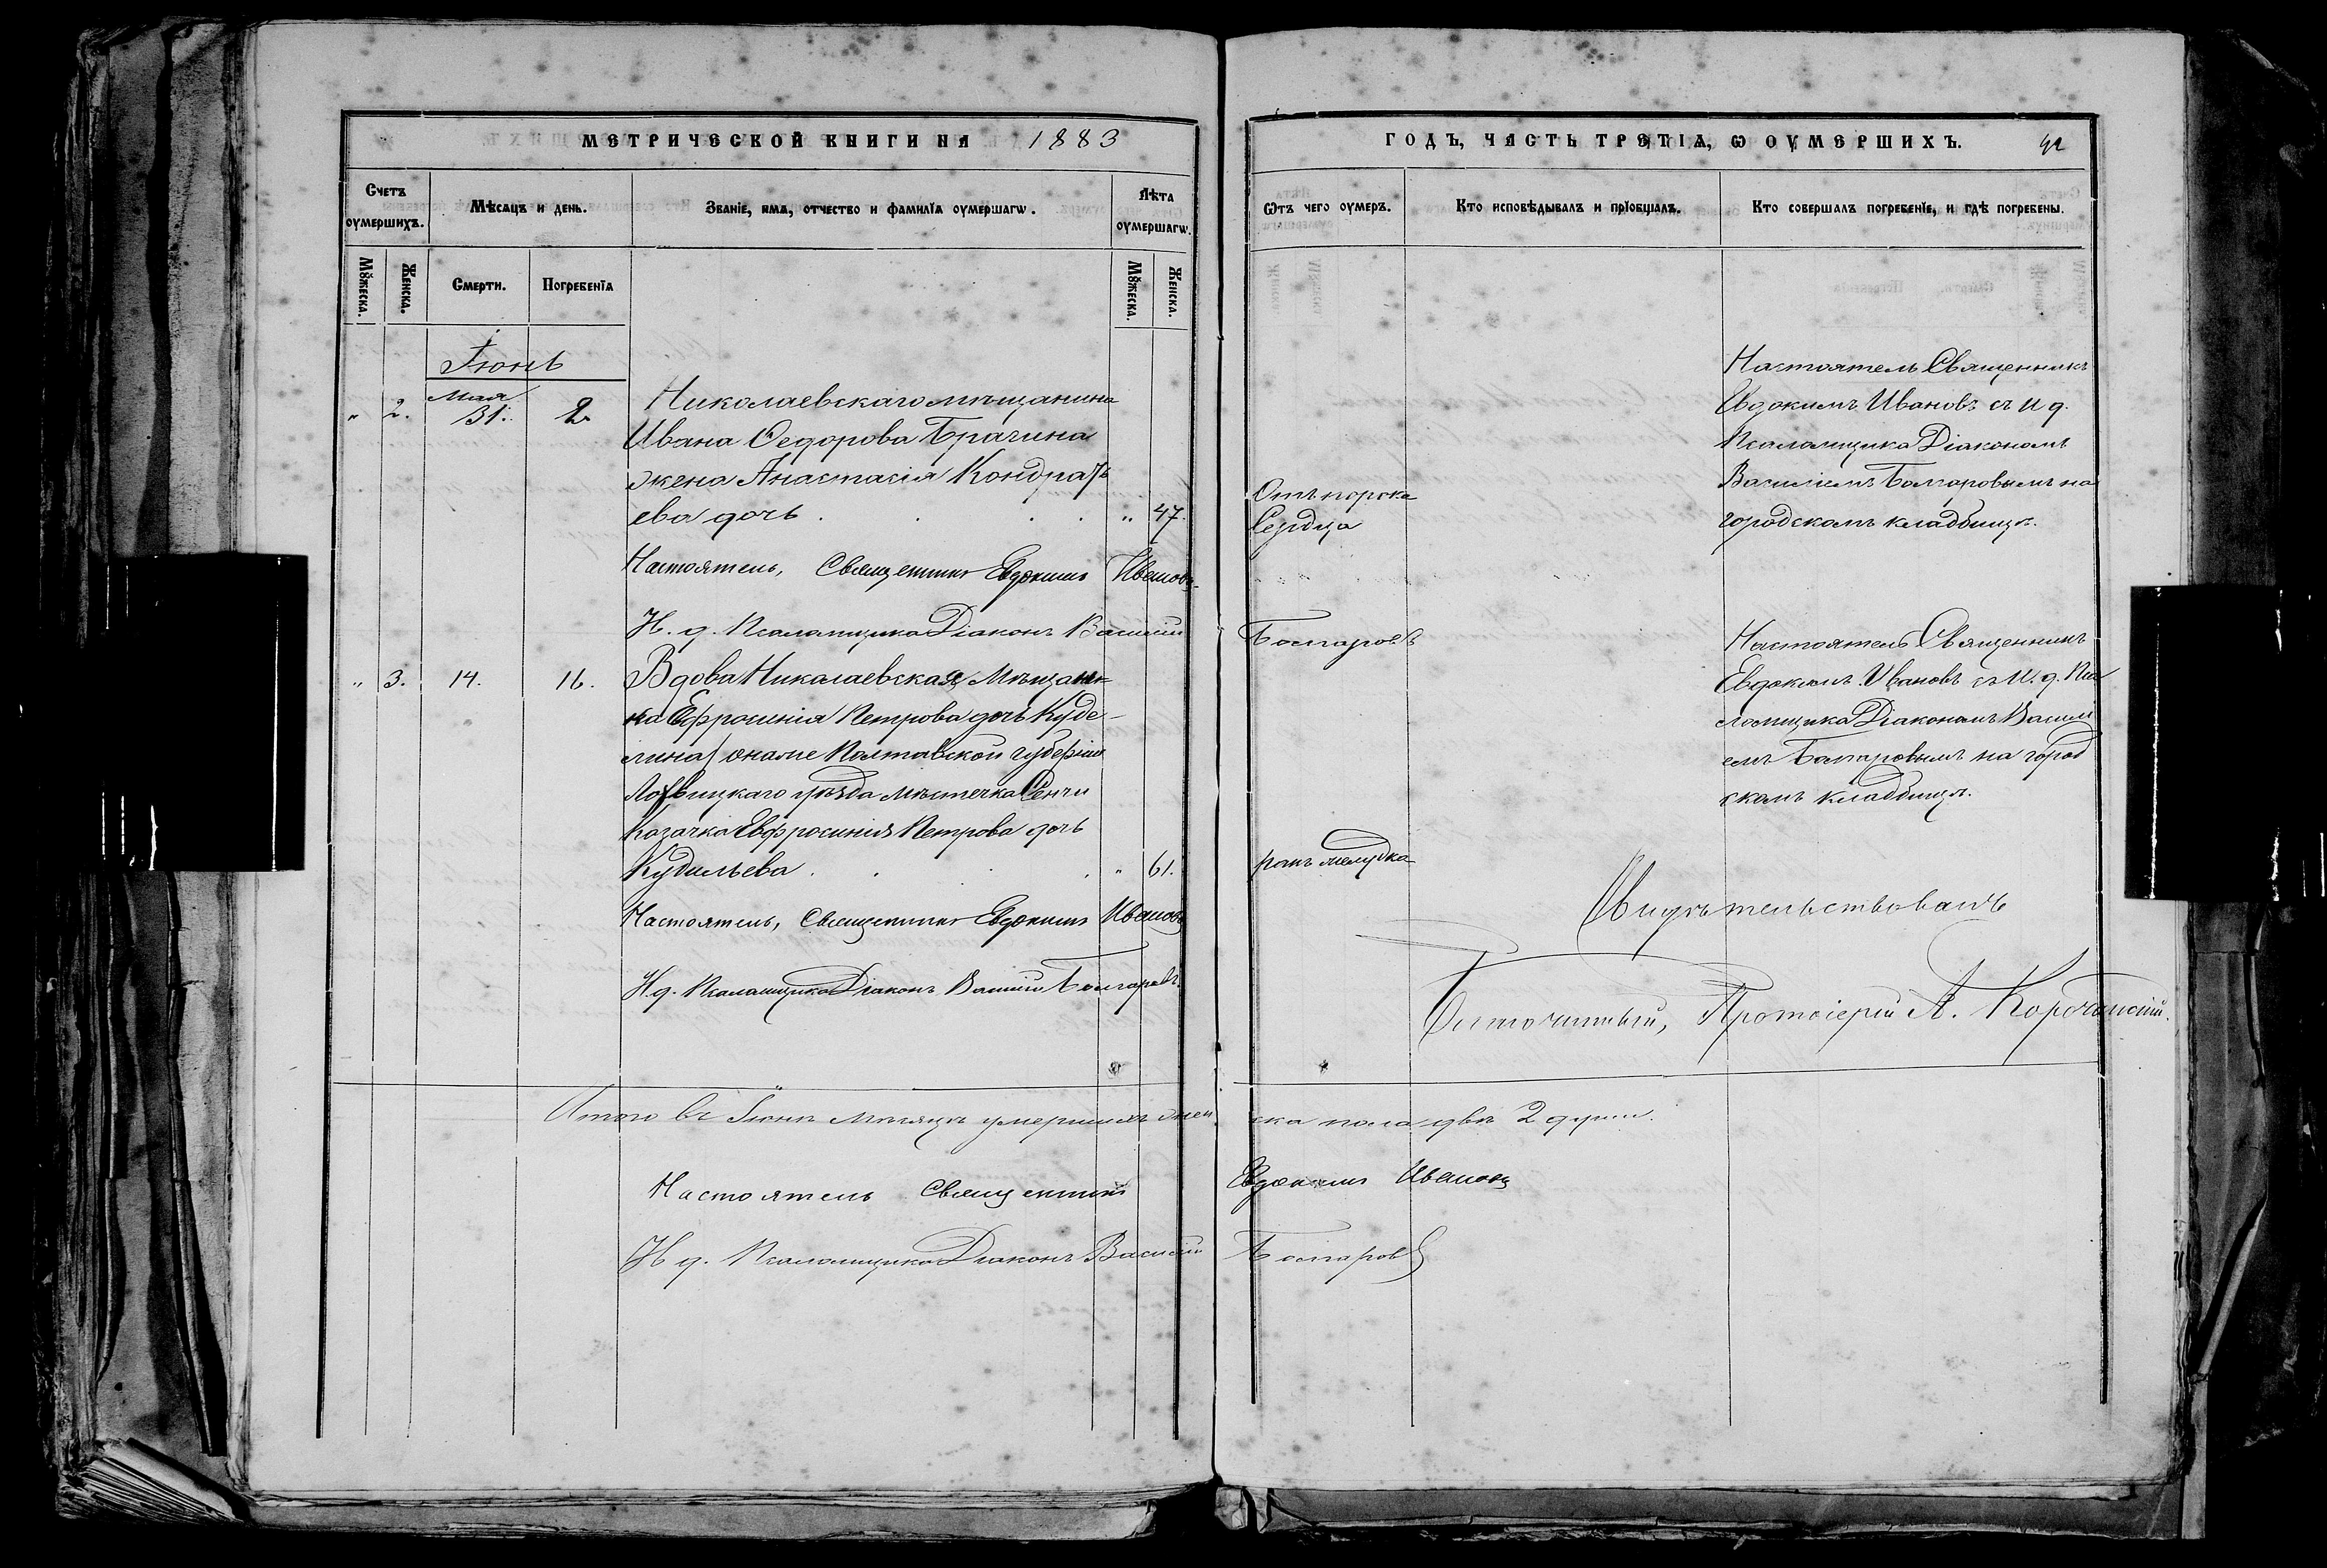 МЕТРИЧЕСКОЙ КНИГИ НА 1883
Счетъ оумершихъ.
Мѣсяцъ и день.
Званіе, имя, отчество и фамилія оумершагѡ.
Лѣта оумершагѡ.
Мꙋжеска.
Женска.
Смерти.
Погребенія
Мꙋжеска.
Женска.
Іюнь
„ 2. Мая 31. 2. Николаевскаго мѣщанина
Ивана Ѳедорова Брагина
жена Анастасія Кондрать
ева дочь . . . . „ 47.
Настоятель, Священникъ Евдокимъ Ивановъ
И. д. Псаломщика Діаконъ Василій Болгаровъ
„ 3. 14. 16. Вдова Николаевская Мѣщан-
ка Ефросинія Петрова дочь Куде-
лина онаже Полтавской губерніи
Лохвицкаго уѣзда мѣстечка Сенчи
Казачка Евфросинія Петрова дочь
Кудильева . . . . „ 61.
Настоятель, Священникъ Евдокимъ Ивановъ
И. д. Псаломщика Діаконъ Василій Болгаровъ
Итого въ Іюнѣ мѣсяцѣ умершихъ жен
Настоятель Священникъ
И. д. Псаломщика Діаконъ Василій
ГОДЪ, ЧАСТЬ ТРЕТІЯ, Ѡ ОУМЕРШИХЪ. 42
Ѿтъ чего оумеръ.
Кто исповѣдывалъ и пріобщалъ.
Кто совершалъ погребеніе, и гдѣ погребены.
Отъ порока
Сердца
Настоятель Священникъ
Евдокимъ Ивановъ съ И д.
Псаломщика Діакономъ
Василіемъ Болгаровымъ на
городскомъ кладбищѣ.
Настоятель Священникъ
Евдокимъ Ивановъ съ И. д. Пса
ломщика Діакономъ Василі
емъ Болгаровымъ на город
скомъ кладбищѣ.
ракъ желудка
Свидѣтельствовалъ
Благочинный, Протоіерей А.
ска пола двѣ 2 души.
Евдокимъ Ивановъ
Болгаровъ